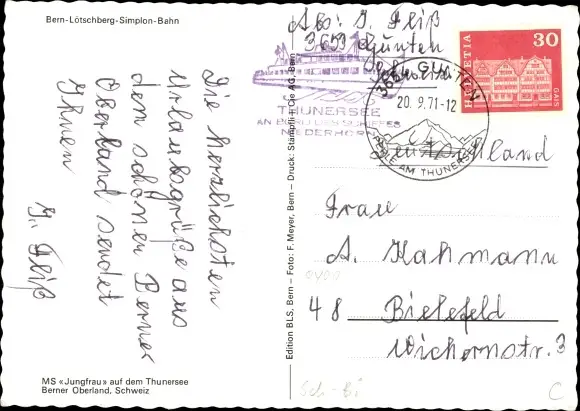 Bern-Lötschberg-Simplon-Bahn
Die herzlichsten
Urlaubsgrüße aus
dem schönen Berner
Oberland sendet
Ihnen
J. Fliß
MS «Jungfrau» auf dem Thunersee
Berner Oberland, Schweiz
Edition BLS, Bern – Foto: F. Meyer, Bern – Druck: Stämpfli + Cie AG, Bern
Abs: J. Fliß
3653 Gunten
Schweiz
THUNERSEE
AN BORD DES SCHIFFES
NIEDERHORN
GUNTEN
20. 9.71-12
PERLE AM THUNERSEE
HELVETIA
30
GAIS
Deutschland
Frau
A. Kahmann
48 Bielefeld
Wichernstr. 3
Sch-Bi
C